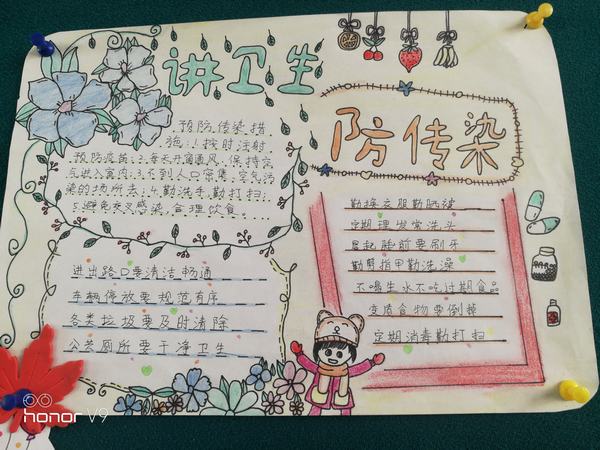 讲卫生
防传染
预防传染措
施:1.按时注射
预防疫苗;2.每天开窗通风,保持空
气进入室内;3.不到人口密集,空气污
染的场所去;4.勤洗手,勤打扫;
5.避免交叉感染,合理饮食。
进出路口要清洁畅通
车辆停放要规范有序
各类垃圾要及时清除
公共厕所要干净卫生
勤换衣服勤晒被
定期理发常洗头
早起睡前要刷牙
勤剪指甲勤洗澡
不喝生水不吃过期食品
变质食物要倒掉
定期消毒勤打扫
honor V9